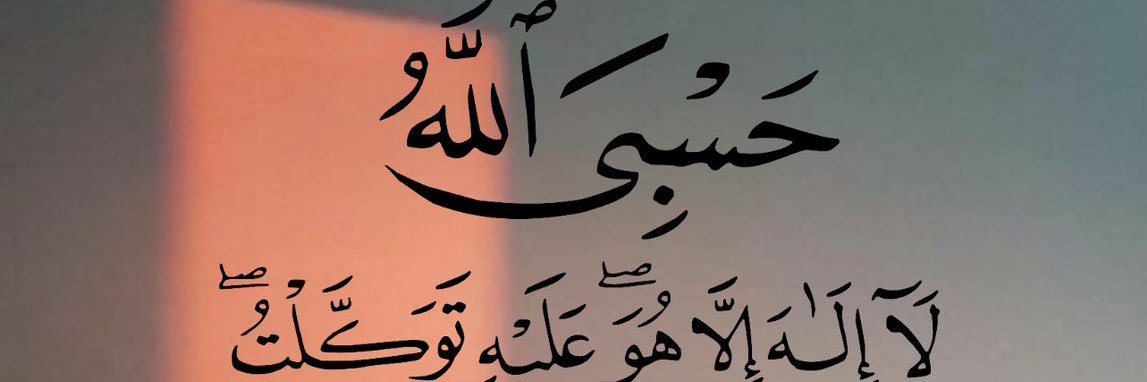 حَسْبِىَ ٱللَّهُ
لَآ إِلَـٰهَ إِلَّا هُوَ ۖ عَلَيْهِ تَوَكَّلْتُ ۖ